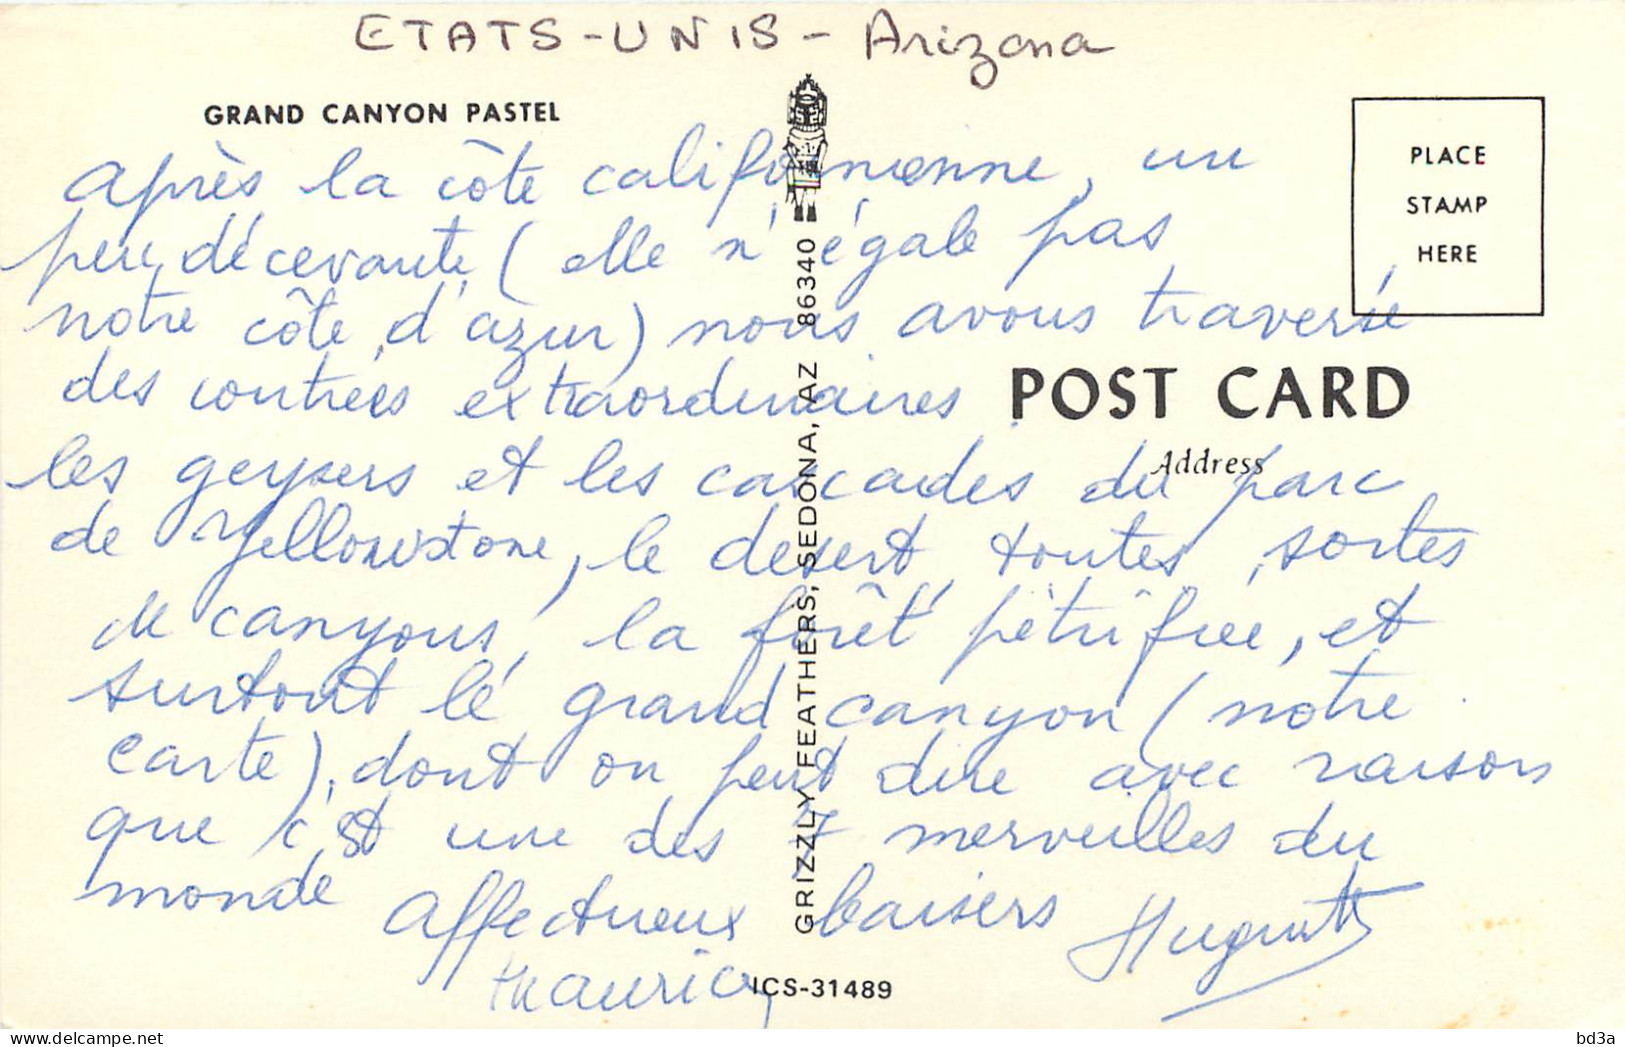 ETATS-UNIS - Arizona
GRAND CANYON PASTEL
PLACE
STAMP
HERE
après la côte californienne, un
peu décevante, (elle n'égale pas
notre côte d'azur) nous avons traversé
des contrées extraordinaires
POST CARD
Address
les geysers et les cascades du parc
de Yellowstone, le desert, toutes sortes
de canyons, la forêt pétrifiée, et
surtout le grand canyon (notre
carte), dont on peut dire avec raison
que c'est une des 7 merveilles du
monde
affectueux baisers Huguette
Maurice
GRIZZLY FEATHERS, SEDONA, AZ 86340
ICS-31489
bd3a